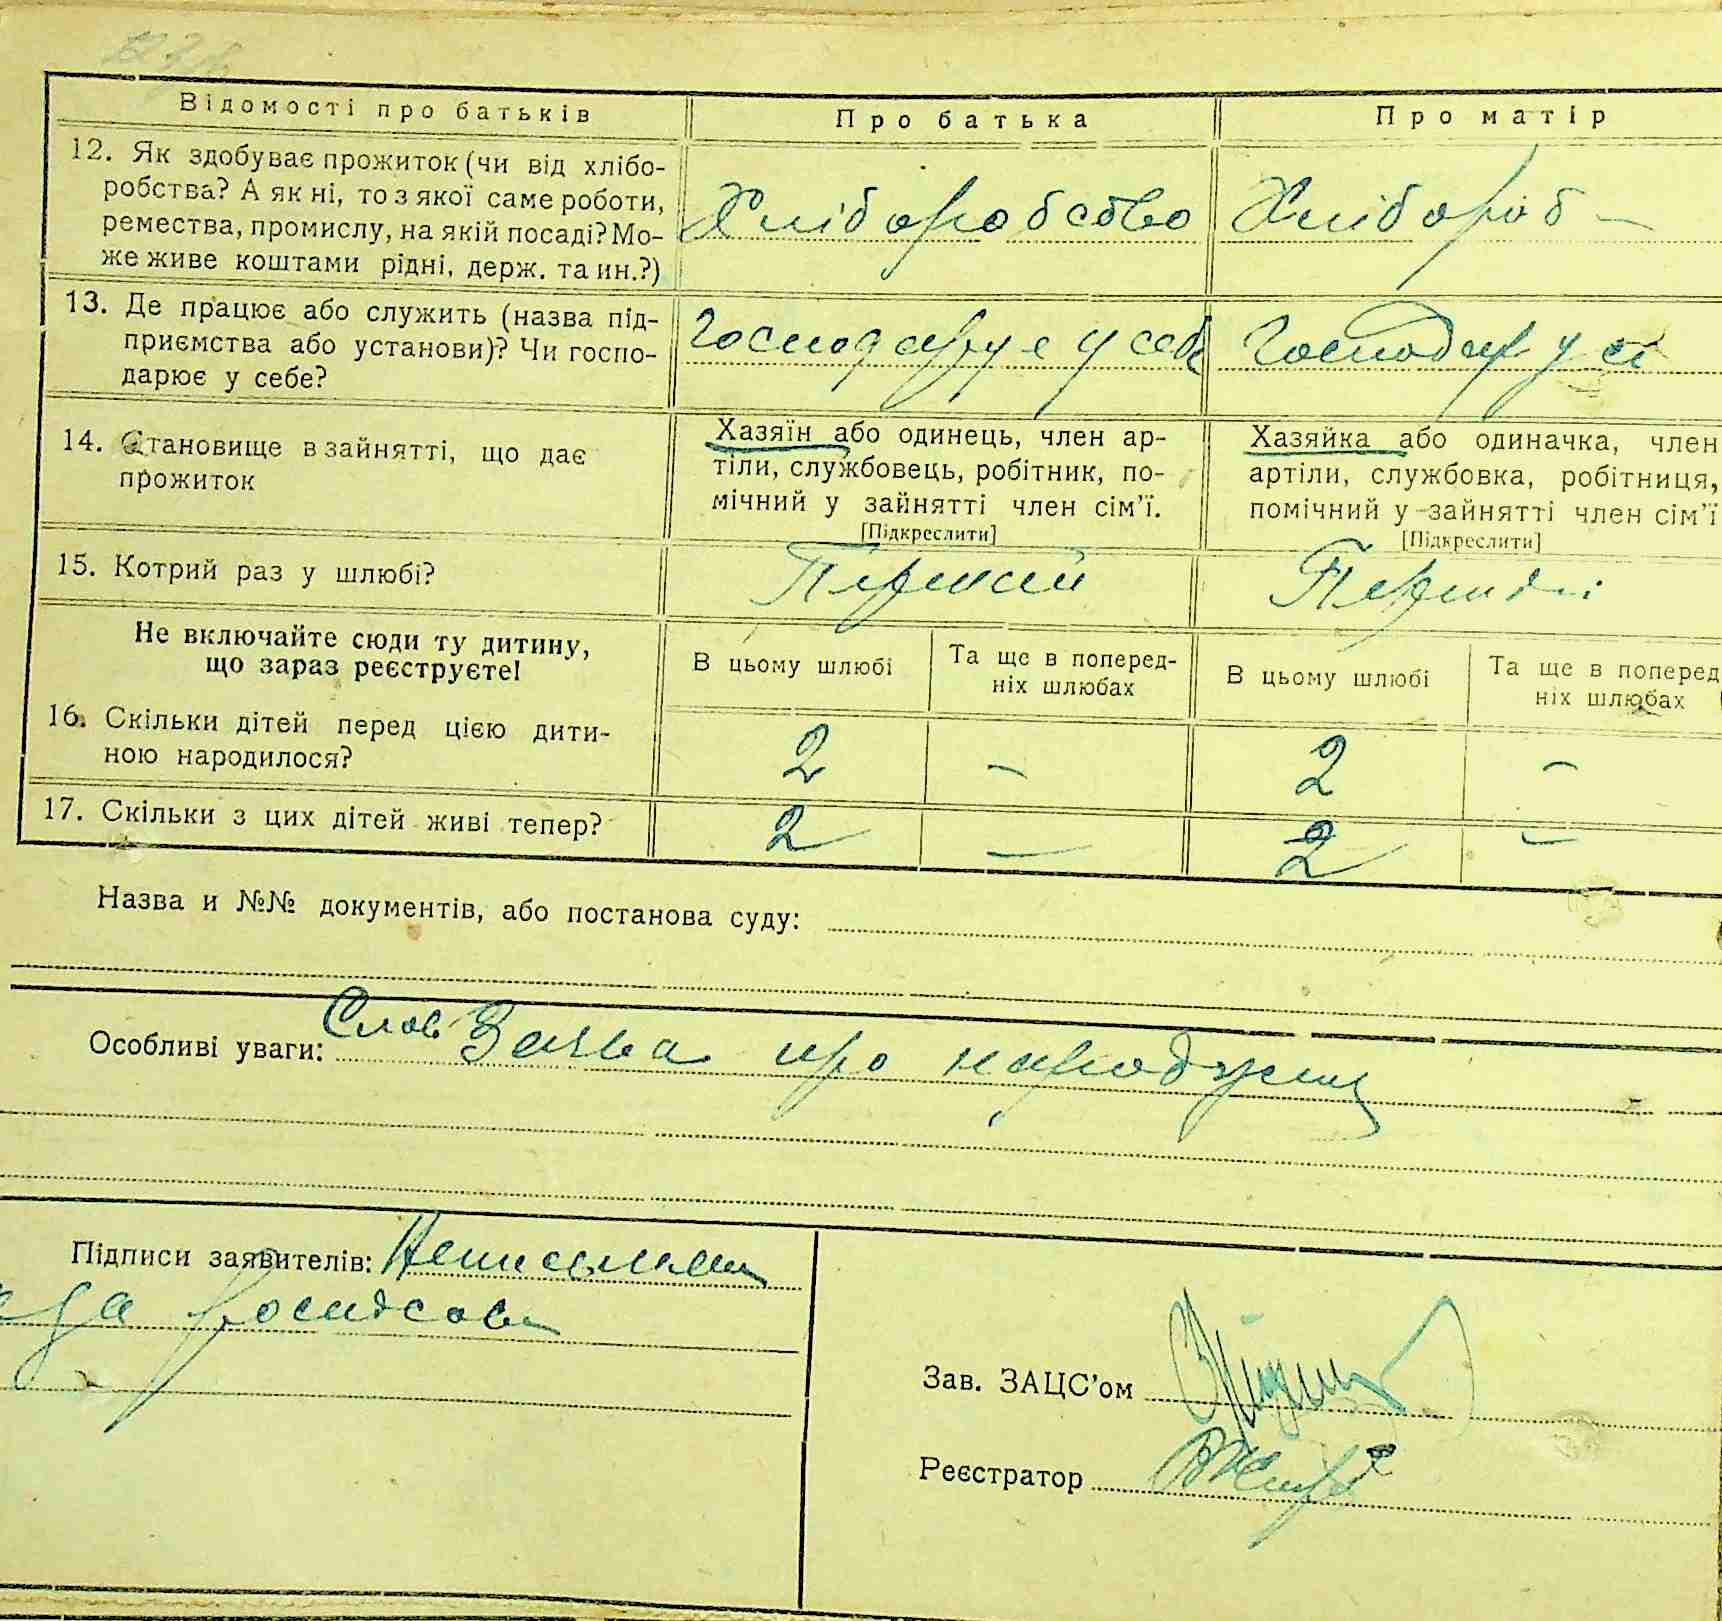 Відомості про батьків
Про батька
Про матір
12. Як здобуває прожиток (чи від хлібо-
робства? А як ні, то з якої саме роботи,
ремества, промислу, на якій посаді? Мо-
же живе коштами рідні, держ. та ин.?)
Хліборобство
Хлібороб –
13. Де працює або служить (назва під-
приємства або установи)? Чи госпо-
дарює у себе?
Господарує у себе
Господар у се
14. Становище в зайнятті, що дає
прожиток
Хазяїн або одинець, член ар-
тіли, службовець, робітник, по-
мічний у зайнятті член сім'ї.
[Підкреслити]
Хазяйка або одиначка, член
артіли, службовка, робітниця,
помічний у зайнятті член сім'ї
[Підкреслити]
15. Котрий раз у шлюбі?
Перший
Перший
Не включайте сюди ту дитину,
що зараз реєструєте!
В цьому шлюбі
Та ще в поперед-
ніх шлюбах
В цьому шлюбі
Та ще в поперед
ніх шлюбах
16. Скільки дітей перед цією дити-
ною народилося?
2 – 2 –
17. Скільки з цих дітей живі тепер?
2 – 2 –
Назва и №№ документів, або постанова суду:
Особливі уваги: Слов Заява про народжен
Підписи заявителів: Неписьмен
Зав. ЗАЦС'ом
Реєстратор